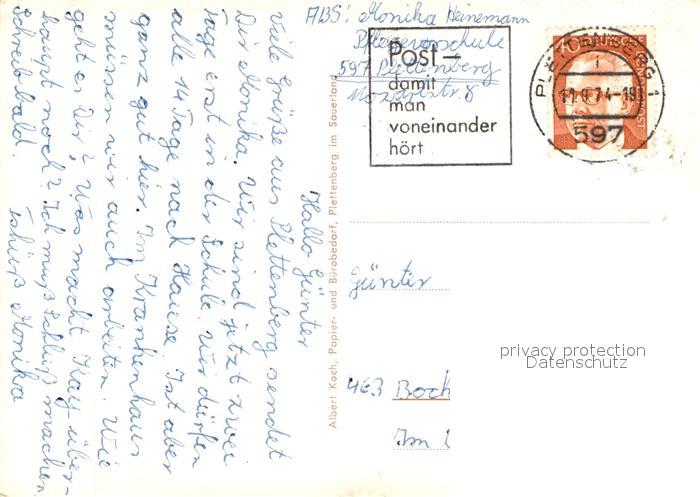 Hallo Günter
Viele Grüße aus Plettenberg sendet
Dir Monika. Wir sind jetzt zwei
Tage erst in der Schule. Wir dürfen
alle 14 Tage nach Hause. Ist aber
ganz gut hier. Im Krankenhaus
müssen wir auch arbeiten. Wie
geht es Dir? Was macht Kay über-
haupt noch? Ich muß Schluß machen.
Schreib bald
Tschüß Monika
Albert Koch, Papier- und Bürobedarf, Plettenberg im Sauerland
ABS: Monika Heinemann
Pflegevorschule
597 Plettenberg
Mozartstr. 8
Post –
damit
man
voneinander
hört
PLETTENBERG 1
74-19
597
40 DEUTSCHE
POST
Günter
463 Boch
Im
privacy protection
Datenschutz